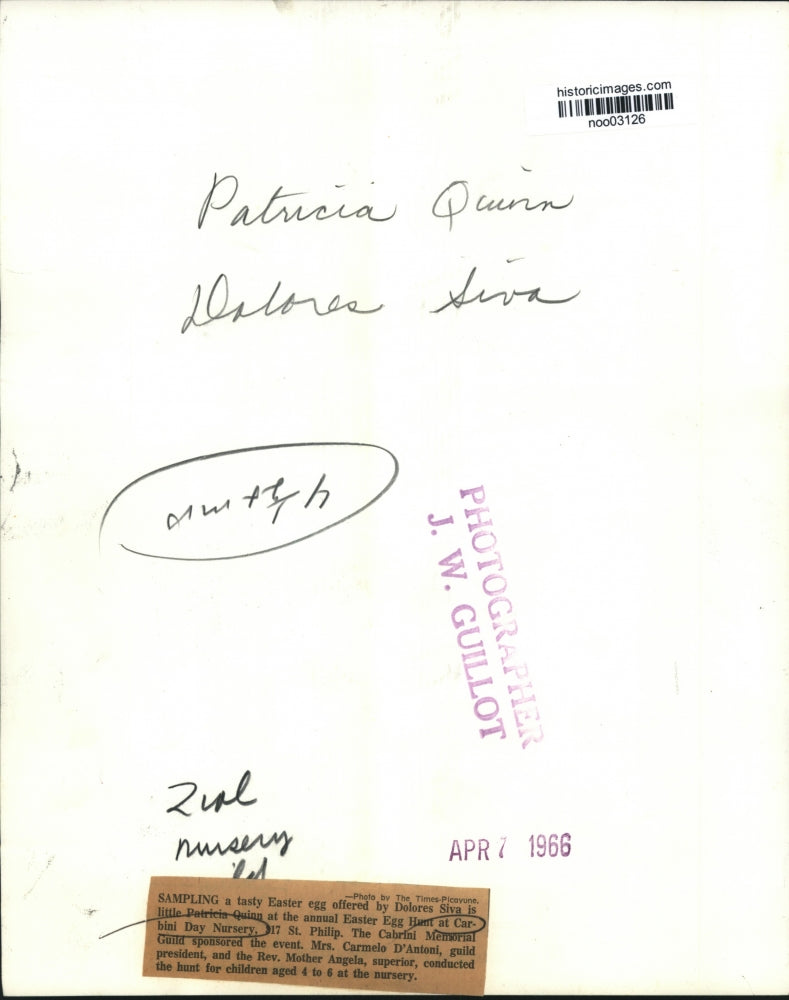 historicimages.com
noo03126
Patricia Quinn
Dolores Siva
PHOTOGRAPHER
J. W. GUILLOT
nursery
APR 7 1966
—Photo by The Times-Picayune.
SAMPLING a tasty Easter egg offered by Dolores Siva is
little Patricia Quinn at the annual Easter Egg Hunt at Car-
bini Day Nursery, 817 St. Philip. The Cabrini Memorial
Guild sponsored the event. Mrs. Carmelo D'Antoni, guild
president, and the Rev. Mother Angela, superior, conducted
the hunt for children aged 4 to 6 at the nursery.